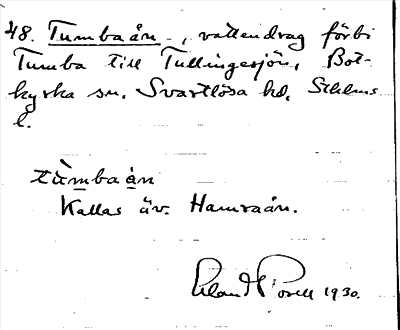 48. Tumbaån –, vattendrag förbi
Tumba till Tullingesjön, Bot-
kyrka sn. Svartlösa hd, Sthlms
l.
tùmbaån
Kallas äv. Hamraån.
1930.